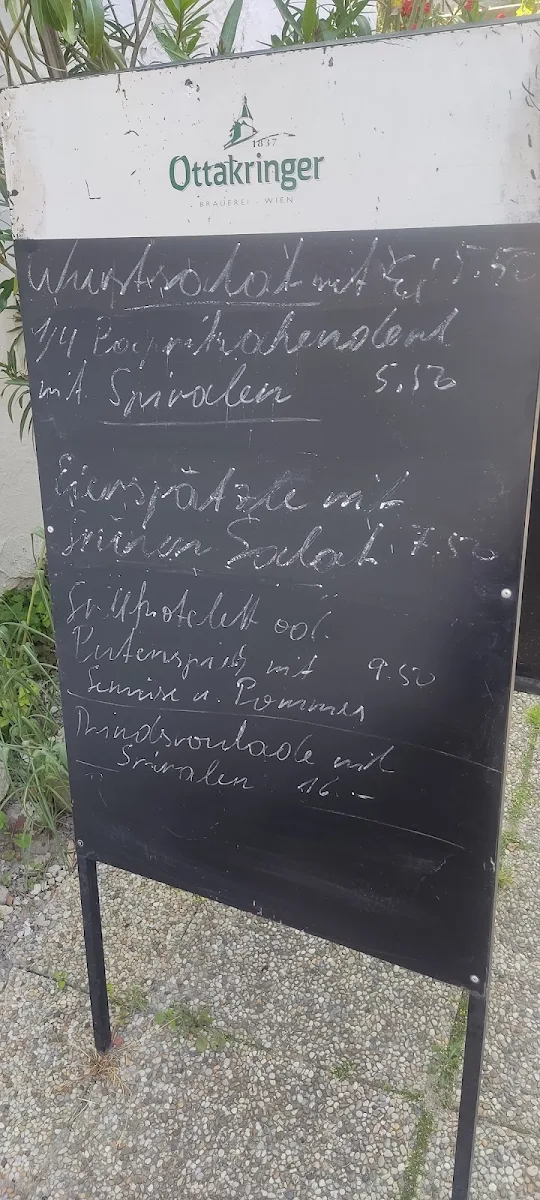 1837
Ottakringer
BRAUEREI · WIEN
Wurstsalat mit Ei 5.50
1/4 Paprikahenderl
mit Spiralen 5.50
Eierspätzle mit
grünen Salat 7.50
Grillkotelett od.
Putenspieß mit 9.50
Gemüse u. Pommes
Rindsroulade mit
Spiralen 16.-